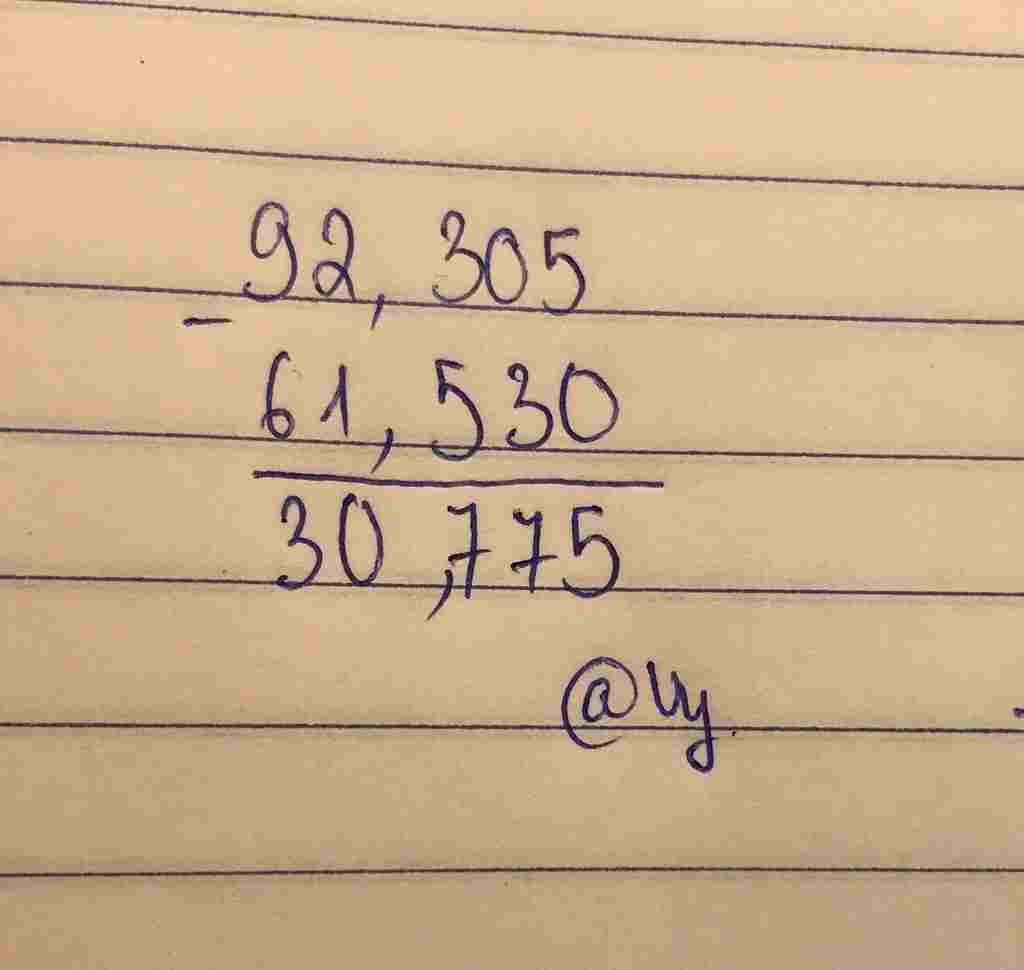 92, 305
-
61, 530
30 ,775
@Vy